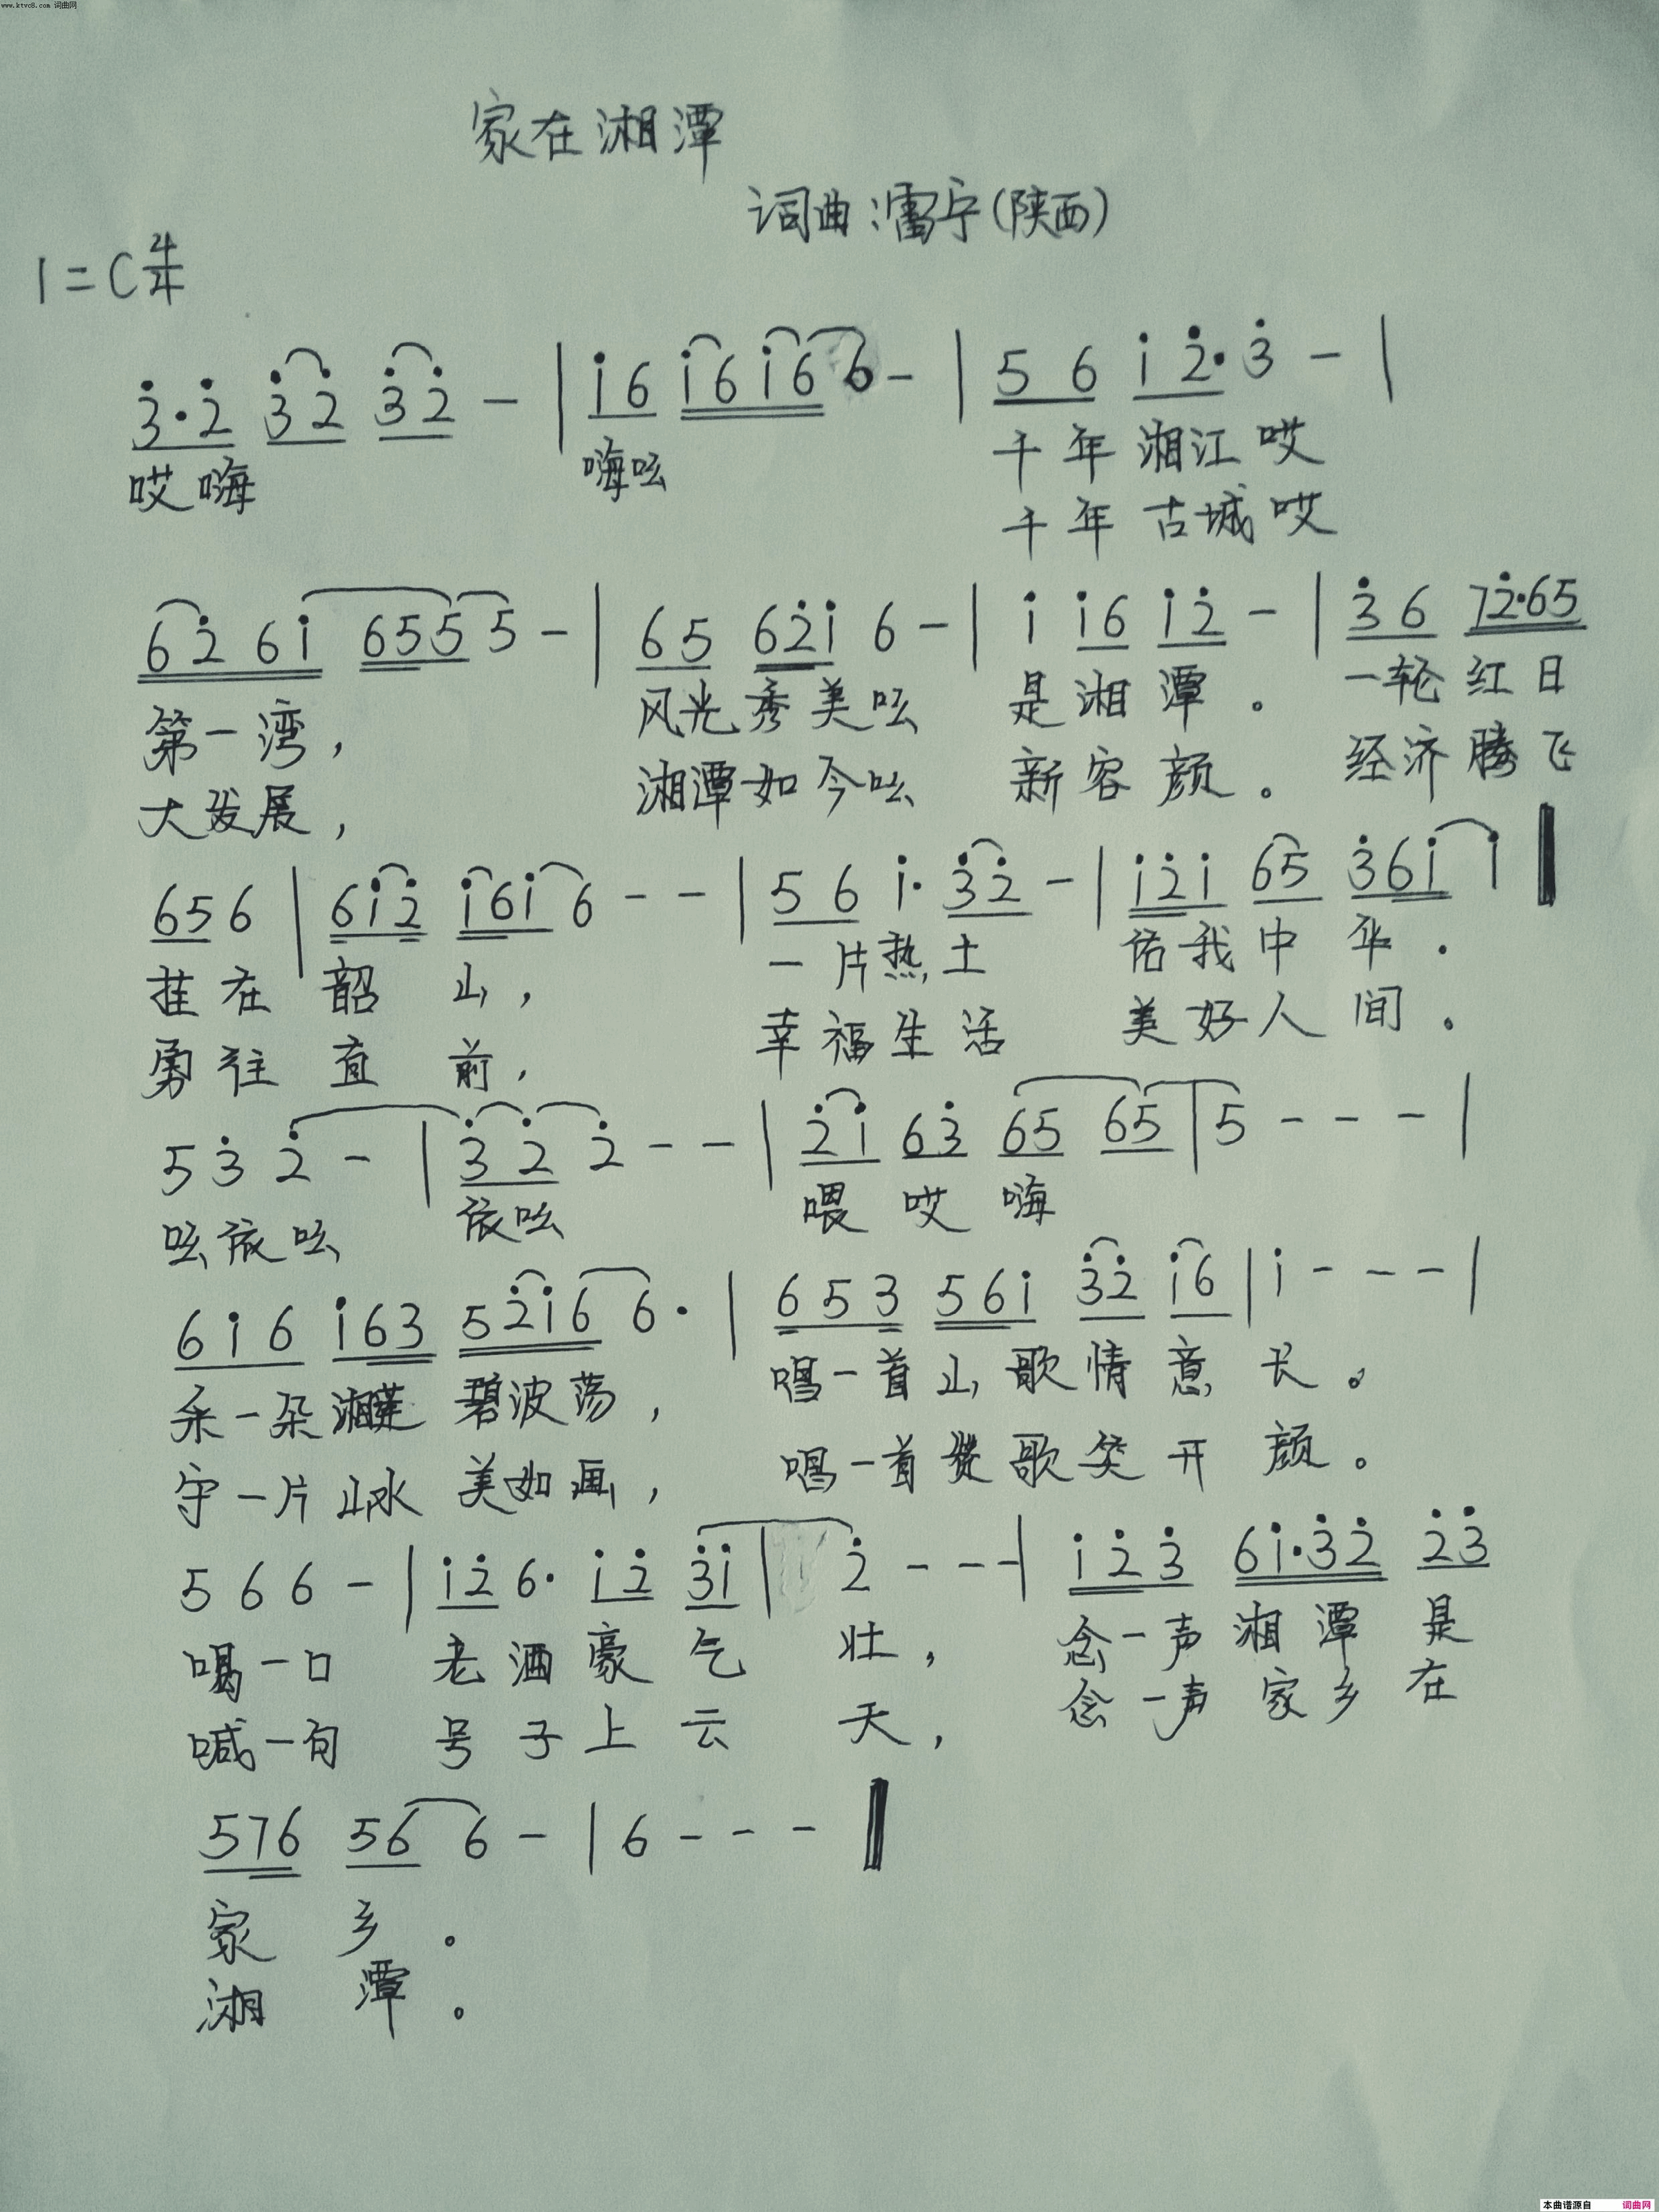 www.ktvc8.com 词曲网
家在湘潭
词曲:雷宁(陕西)
1=C 4/4
3̇·2̇ 3̇2̇ 3̇2̇ - | 1̇6 1̇6 1̇6 6 - | 5 6 1̇ 2̇· 3̇ - |
哎嗨 嗨吆 千年湘江哎
千年古城哎
62̇61̇ 655 5 - | 65 62̇1̇ 6 - | 1̇ 1̇6 1̇2̇ - | 3̇6 72̇·65
第一湾, 风光秀美吆 是湘潭。 一轮红日
大发展, 湘潭如今吆 新容颜。 经济腾飞
656 | 61̇2̇ 1̇61̇ 6 - - | 5 6 1̇· 3̇2̇ - | 1̇2̇1̇ 65 3̇61̇ 1̇ ‖
挂在韶山, 一片热土 佑我中华.
勇往直前, 幸福生活 美好人间.
5 3̇ 2̇ - | 3̇ 2̇ 2̇ - - | 2̇1̇ 63̇ 65 65 | 5 - - - |
吆依吆 依吆 喂哎嗨
61̇6 1̇63 52̇1̇6 6· | 653 561̇ 3̇2̇ 1̇6 | 1̇ - - - |
采一朵湘莲 碧波荡, 唱一首山歌情意长。
守一片山水 美如画, 唱一首赞歌笑开颜。
5 6 6 - | 1̇2̇ 6· 1̇2̇ 3̇1̇ | 2̇ - - - | 1̇2̇3̇ 61̇·3̇2̇ 2̇3̇
喝一口 老酒豪气 壮, 念一声湘潭是
喊一句 号子上云 天, 念一声家乡在
576 56 6 - | 6 - - - ‖
家乡。
湘潭。
本曲谱源自 词曲网